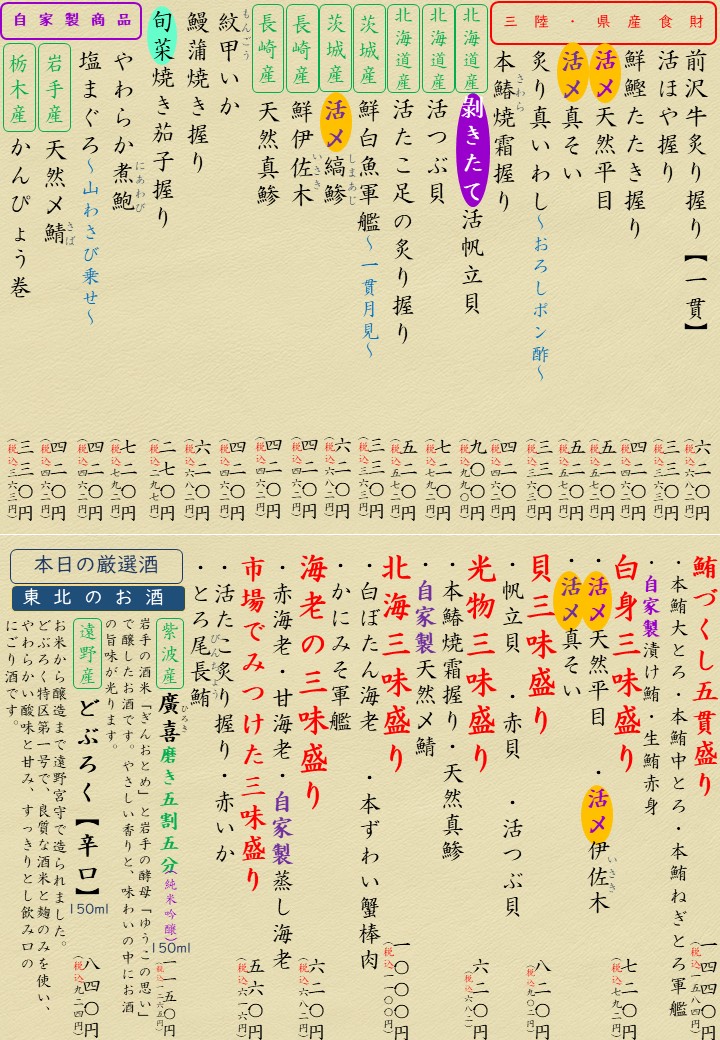 三陸・県産食財
前沢牛炙り握り【一貫】
六二〇円
(税込六八二円)
活ほや握り
三三〇円
(税込三六三円)
鮮鰹たたき握り
四二〇円
(税込四六二円)
活〆天然平目
五二〇円
(税込五七二円)
活〆真そい
五二〇円
(税込五七二円)
炙り真いわし～おろしポン酢～
三三〇円
(税込三六三円)
本鰆焼霜握り
さわら
四二〇円
(税込四六二円)
北海道産
剥きたて活帆立貝
九〇〇円
(税込九九〇円)
北海道産
活つぶ貝
七二〇円
(税込七九二円)
北海道産
活たこ足の炙り握り
五二〇円
(税込五七二円)
茨城産
鮮白魚軍艦～一貫月見～
三三〇円
(税込三六三円)
茨城産
活〆縞鯵
しまあじ
六二〇円
(税込六八二円)
長崎産
鮮伊佐木
いさき
四二〇円
(税込四六二円)
長崎産
天然真鯵
四二〇円
(税込四六二円)
紋甲いか
もんごう
四二〇円
(税込四六二円)
鰻蒲焼き握り
六二〇円
(税込六八二円)
旬菜焼き茄子握り
二七〇円
(税込二九七円)
自家製商品
やわらか煮鮑
にあわび
七二〇円
(税込七九二円)
塩まぐろ～山わさび乗せ～
四二〇円
(税込四六二円)
岩手産
天然〆鯖
さば
四二〇円
(税込四六二円)
栃木産
かんぴょう巻
三三〇円
(税込三六三円)
鮪づくし五貫盛り
一四四〇円
(税込一五八四円)
・本鮪大とろ・本鮪中とろ・本鮪ねぎとろ軍艦
・自家製漬け鮪・生鮪赤身
白身三味盛り
七二〇円
(税込七九二円)
・活〆天然平目・活〆伊佐木
いさき
・活〆真そい
貝三味盛り
八二〇円
(税込九〇二円)
・帆立貝・赤貝・活つぶ貝
光物三味盛り
六二〇円
(税込六八二)
・本鰆焼霜握り・天然真鯵
・自家製天然〆鯖
北海三味盛り
一〇〇〇円
(税込一一〇〇円)
・白ぼたん海老・本ずわい蟹棒肉
・かにみそ軍艦
海老の三味盛り
六二〇円
(税込六八二円)
・赤海老・甘海老・自家製蒸し海老
市場でみつけた三味盛り
五六〇円
(税込六一六円)
・活たこ炙り握り・赤いか
・とろ尾長鮪
びんちょう
本日の厳選酒
東北のお酒
紫波産
廣喜磨き五割五分(純米吟醸)
ひろき
150ml
一一五〇円
(税込一二六五円)
岩手の酒米「ぎんおとめ」と岩手の酵母「ゆうこの思い」
で醸したお酒です。やさしい香りと、味わいの中にお酒
の旨味が光ります。
遠野産
どぶろく【辛口】
150ml
八四〇円
(税込九二四円)
お米から醸造まで遠野宮守で造られました。
どぶろく特区第一号で、良質な酒米と麹のみを使い、
やわらかい酸味と甘み、すっきりとし飲み口の
にごり酒です。